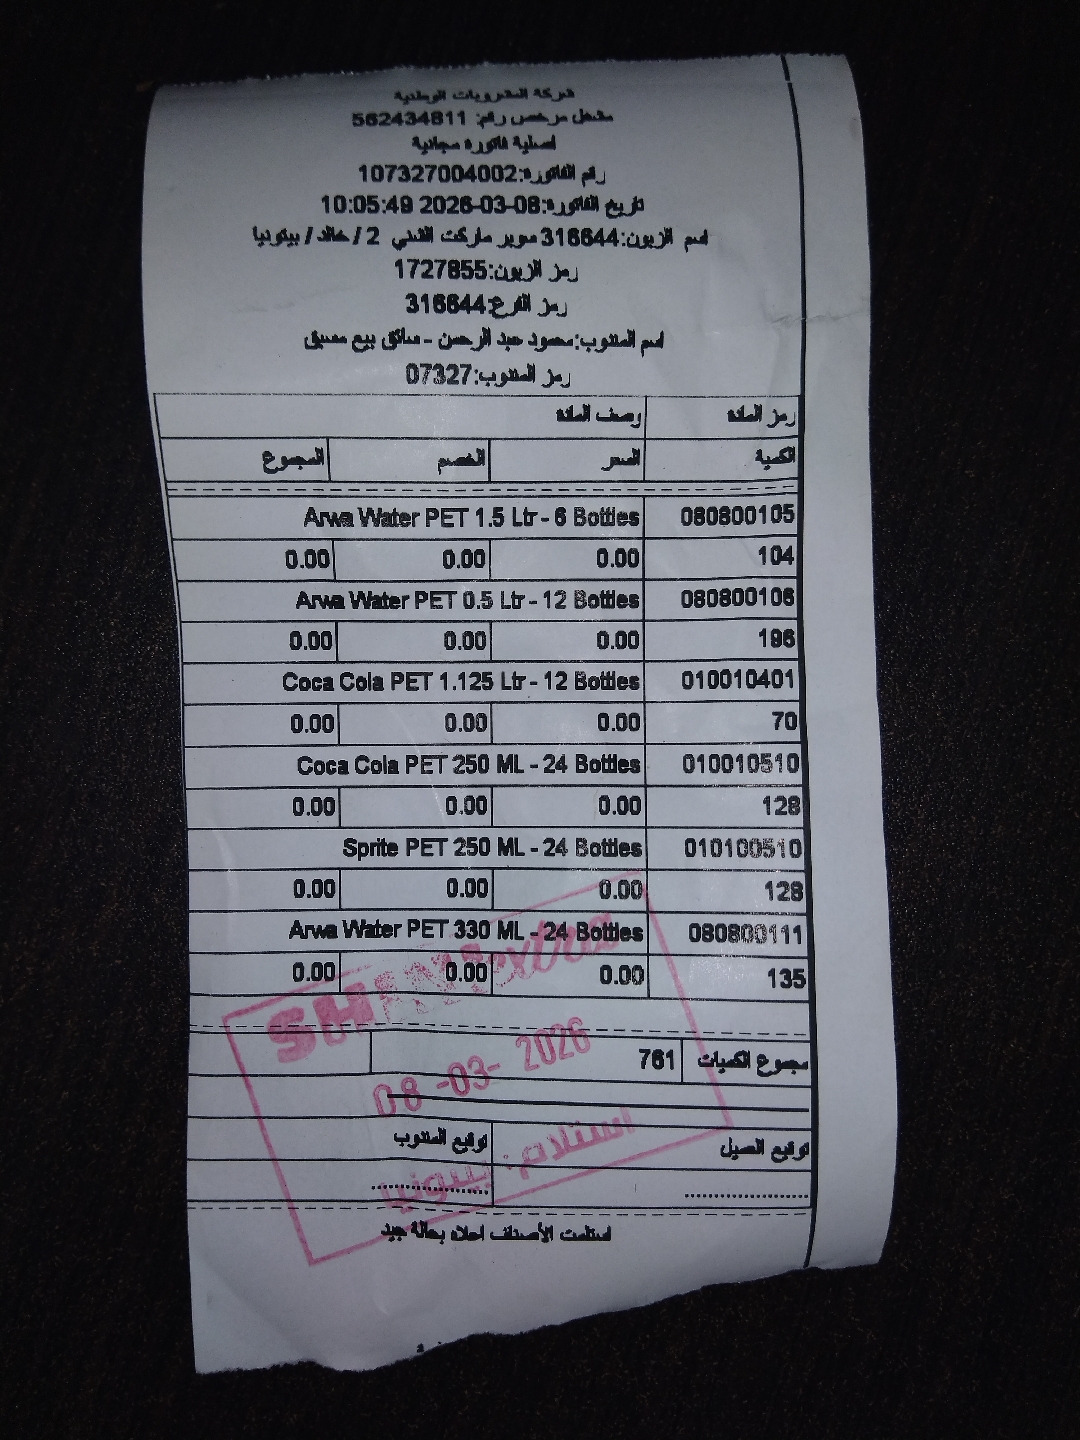 شركة المشروبات الوطنية
مشغل مرخص رقم: 562434811
اصلية فاتورة مجانية
رقم الفاتورة:107327004002
تاريخ الفاتورة:2026-03-08 10:05:49
اسم الزبون:316644 سوبر ماركت الشني 2 / خالد / بيتونيا
رمز الزبون:1727855
رمز الفرع:316644
اسم المندوب:محمود عبد الرحمن - سائق بيع مسبق
رمز المندوب:07327
رمز المادة وصف المادة
الكمية السعر الخصم المجموع
080800105 Arwa Water PET 1.5 Ltr - 6 Bottles
104 0.00 0.00 0.00
080800106 Arwa Water PET 0.5 Ltr - 12 Bottles
196 0.00 0.00 0.00
010010401 Coca Cola PET 1.125 Ltr - 12 Bottles
70 0.00 0.00 0.00
010010510 Coca Cola PET 250 ML - 24 Bottles
128 0.00 0.00 0.00
010100510 Sprite PET 250 ML - 24 Bottles
128 0.00 0.00 0.00
080800111 Arwa Water PET 330 ML - 24 Bottles
135 0.00 0.00 0.00
extra
مجموع الكميات 761
08-03-2026
توقيع العميل توقيع المندوب
استلام: بيتونيا
استلمت الأصناف اعلاه بحالة جيد